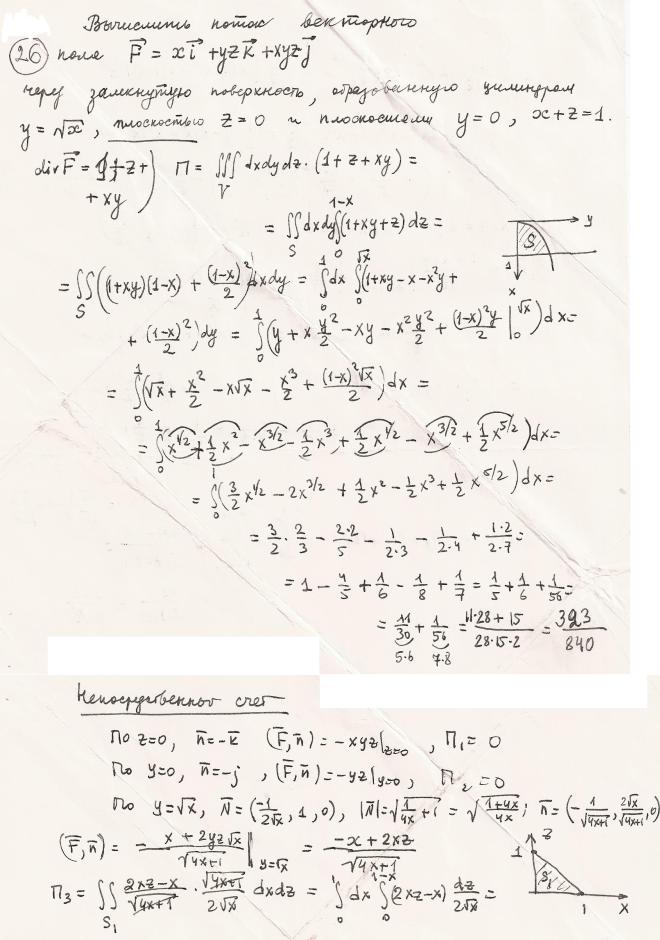 Вычислить поток векторного
26 поля F⃗ = x i⃗ + yz k⃗ + xyz j⃗
через замкнутую поверхность, образованную цилиндром
y = √x, плоскостью z = 0 и плоскостями y = 0, x + z = 1.
div F⃗ = (1 + z + + xy) П = ∭_V dxdydz · (1 + z + xy) =
= ∬_S dxdy ∫_0^{1-x} (1 + xy + z) dz =
y
S
1
x
= ∬_S ((1+xy)(1-x) + (1-x)²/2) dxdy = ∫_0^1 dx ∫_0^{√x} (1 + xy - x - x²y +
+ (1-x)²/2) dy = ∫_0^1 (y + x y²/2 - xy - x² y²/2 + (1-x)²y/2 |_0^{√x}) dx =
= ∫_0^1 (√x + x²/2 - x√x - x³/2 + (1-x)²√x/2) dx =
= ∫_0^1 (x^{1/2} + 1/2 x² - x^{3/2} - 1/2 x³ + 1/2 x^{1/2} - x^{3/2} + 1/2 x^{5/2}) dx =
= ∫_0^1 (3/2 x^{1/2} - 2x^{3/2} + 1/2 x² - 1/2 x³ + 1/2 x^{5/2}) dx =
= 3/2 · 2/3 - 2·2/5 - 1/2·3 - 1/2·4 + 1·2/2·7 =
= 1 - 4/5 + 1/6 - 1/8 + 1/7 = 1/5 + 1/6 + 1/56 =
= 11/30 + 1/56 = 11·28 + 15/28·15·2 = 323/840
5·6 7·8
Непосредственный счет
По z=0, n̄ = -k̄ (F̄, n̄) = -xyz|_{z=0}, П₁ = 0
По y=0, n̄ = -j, (F̄, n̄) = -yz|_{y=0}, П₂ = 0
По y=√x, N̄ = (-1/2√x, 1, 0), |N̄| = √(1/4x + 1) = √(1+4x/4x); n̄ = (-1/√(4x+1), 2√x/√(4x+1), 0)
(F̄, n̄) = - x + 2yz√x/√(4x+1) |_{y=√x} = -x + 2xz/√(4x+1)
z
1
S₁
1
x
П₃ = ∬_{S₁} 2xz-x/√(4x+1) · √(4x+1)/2√x dxdz = ∫_0^1 dx ∫_0^{1-x} (2xz-x) dz/2√x =